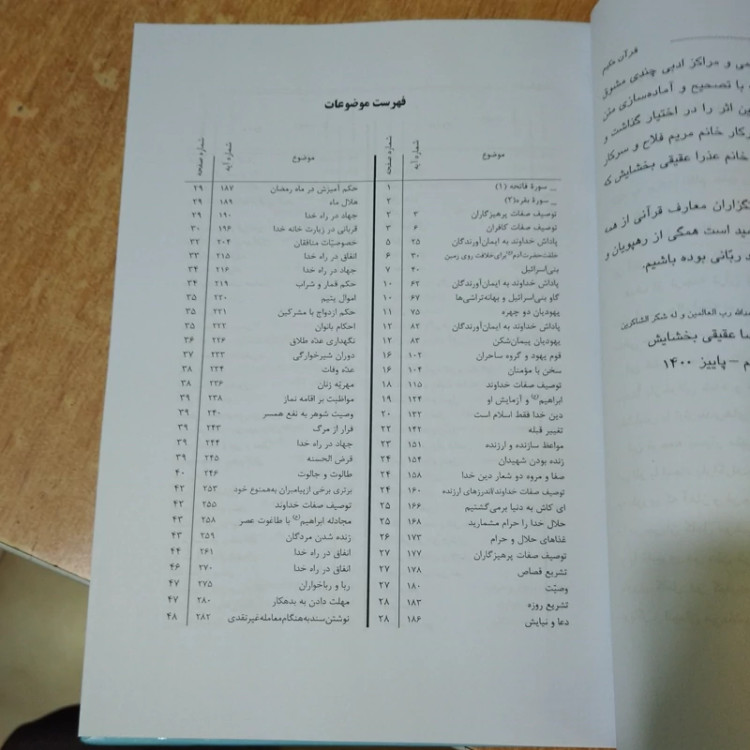 فهرست موضوعات
موضوع شماره آیه شماره صفحه
_ سورۀ فاتحه (۱) ۱
_ سورۀ بقره (۲) ۲
توصیف صفات پرهیزگاران ۳ ۲
توصیف صفات کافران ۶ ۳
پاداش خداوند به ایمان‌آورندگان ۲۵ ۵
خلقت حضرت آدم(ع) برای خلافت روی زمین ۳۰ ۶
بنی‌اسرائیل ۴۰ ۷
پاداش خداوند به ایمان‌آورندگان ۶۲ ۱۰
گاو بنی‌اسرائیل و بهانه‌تراشی‌ها ۶۷ ۱۰
یهودیان دو چهره ۷۵ ۱۱
پاداش خداوند به ایمان‌آورندگان ۸۲ ۱۲
یهودیان پیمان‌شکن ۸۳ ۱۲
قوم یهود و گروه ساحران ۱۰۲ ۱۶
سخن با مؤمنان ۱۰۴ ۱۶
توصیف صفات خداوند ۱۱۵ ۱۸
ابراهیم(ع) و آزمایش او ۱۲۴ ۱۹
دین خدا فقط اسلام است ۱۳۲ ۲۰
تغییر قبله ۱۴۲ ۲۲
مواعظ سازنده و ارزنده ۱۵۱ ۲۳
زنده بودن شهیدان ۱۵۴ ۲۴
صفا و مروه دو شعار دین خدا ۱۵۸ ۲۴
توصیف صفات خداوند/اندرزهای ارزنده ۱۶۰ ۲۴
ای کاش به دنیا برمی‌گشتیم ۱۶۶ ۲۵
حلال خدا را حرام مشمارید ۱۶۸ ۲۵
غذاهای حلال و حرام ۱۷۳ ۲۶
توصیف صفات پرهیزگاران ۱۷۷ ۲۷
تشریع قصاص ۱۷۸ ۲۷
وصیّت ۱۸۰ ۲۷
تشریع روزه ۱۸۳ ۲۸
دعا و نیایش ۱۸۶ ۲۸
موضوع شماره آیه شماره صفحه
حکم آمیزش در ماه رمضان ۱۸۷ ۲۹
هلال ماه ۱۸۹ ۲۹
جهاد در راه خدا ۱۹۰ ۲۹
قربانی در زیارت خانه خدا ۱۹۶ ۳۰
خصوصیّات منافقان ۲۰۴ ۳۲
انفاق در راه خدا ۲۱۵ ۳۳
جهاد در راه خدا ۲۱۶ ۳۴
حکم قمار و شراب ۲۱۹ ۳۴
اموال یتیم ۲۲۰ ۳۵
حکم ازدواج با مشرکین ۲۲۱ ۳۵
احکام بانوان ۲۲۲ ۳۵
نگهداری عدّه طلاق ۲۲۶ ۳۶
دوران شیرخوارگی ۲۳۳ ۳۷
عدّه وفات ۲۳۴ ۳۸
مهریّه زنان ۲۳۶ ۳۸
مواظبت بر اقامه نماز ۲۳۸ ۳۹
وصیت شوهر به نفع همسر ۲۴۰ ۳۹
فرار از مرگ ۲۴۳ ۳۹
جهاد در راه خدا ۲۴۴ ۳۹
قرض الحسنه ۲۴۵ ۳۹
طالوت و جالوت ۲۴۶ ۴۰
برتری برخی از پیامبران به همنوع خود ۲۵۳ ۴۲
توصیف صفات خداوند ۲۵۵ ۴۳
مجادله ابراهیم(ع) با طاغوت عصر ۲۵۸ ۴۳
زنده شدن مردگان ۲۵۹ ۴۳
انفاق در راه خدا ۲۶۱ ۴۴
انفاق در راه خدا ۲۷۰ ۴۶
ربا و رباخواران ۲۷۵ ۴۷
مهلت دادن به بدهکار ۲۸۰ ۴۷
نوشتن سند به هنگام معامله غیر نقدی ۲۸۲ ۴۸
قرآن حکیم
می و مراکز ادبی چندی مشوق
با تصحیح و آماده‌سازی متن
ین اثر را در اختیار گذاشت و
رکار خانم مریم فلاح و سرکار
خانم عذرا عقیقی بخشایش که
نگزاران معارف قرآنی از همه
مید است همگی از رهپویان و
ربّانی بوده باشیم.
دالله رب العالمین و له شکر الشاکرین
ا عقیقی بخشایش
م – پاییز ۱۴۰۰